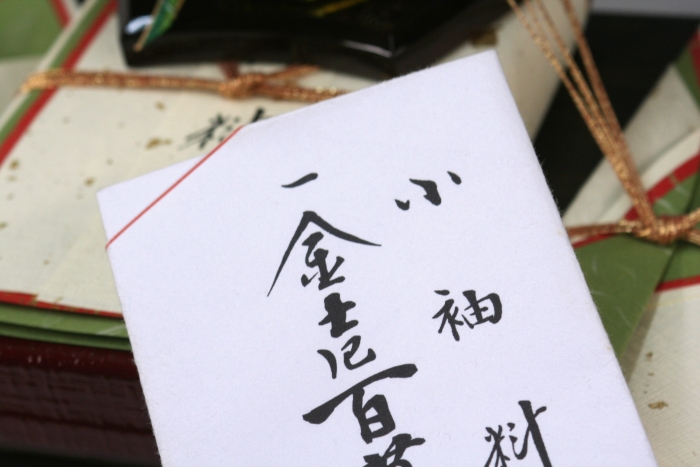 小袖料
一金壱百